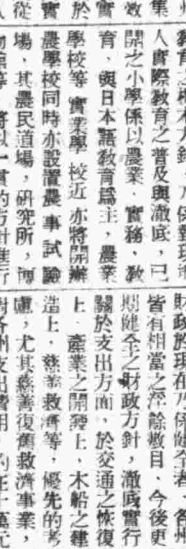 教育之根本方針，乃係對現
人實際教育之普及與澈底，已
開之小學係以農業、實務、敎
育，與日本語敎育爲主，農業
學校等，實業學校近亦將開辦
農學校同時亦設置農事試驗
場，其農民道場，研究所，博
將以一貫的方針進行
財政於現在乃係健全者，各州
皆有相當之浮餘數目，今後更
期健全之財政方針，澈底實行
關於支出方面，於交通之恢復
上，產業之開發上，木船之建
造上，慈善救濟等，優先的考
慮，尤其慈善復舊救濟事業，
對各州支出費用